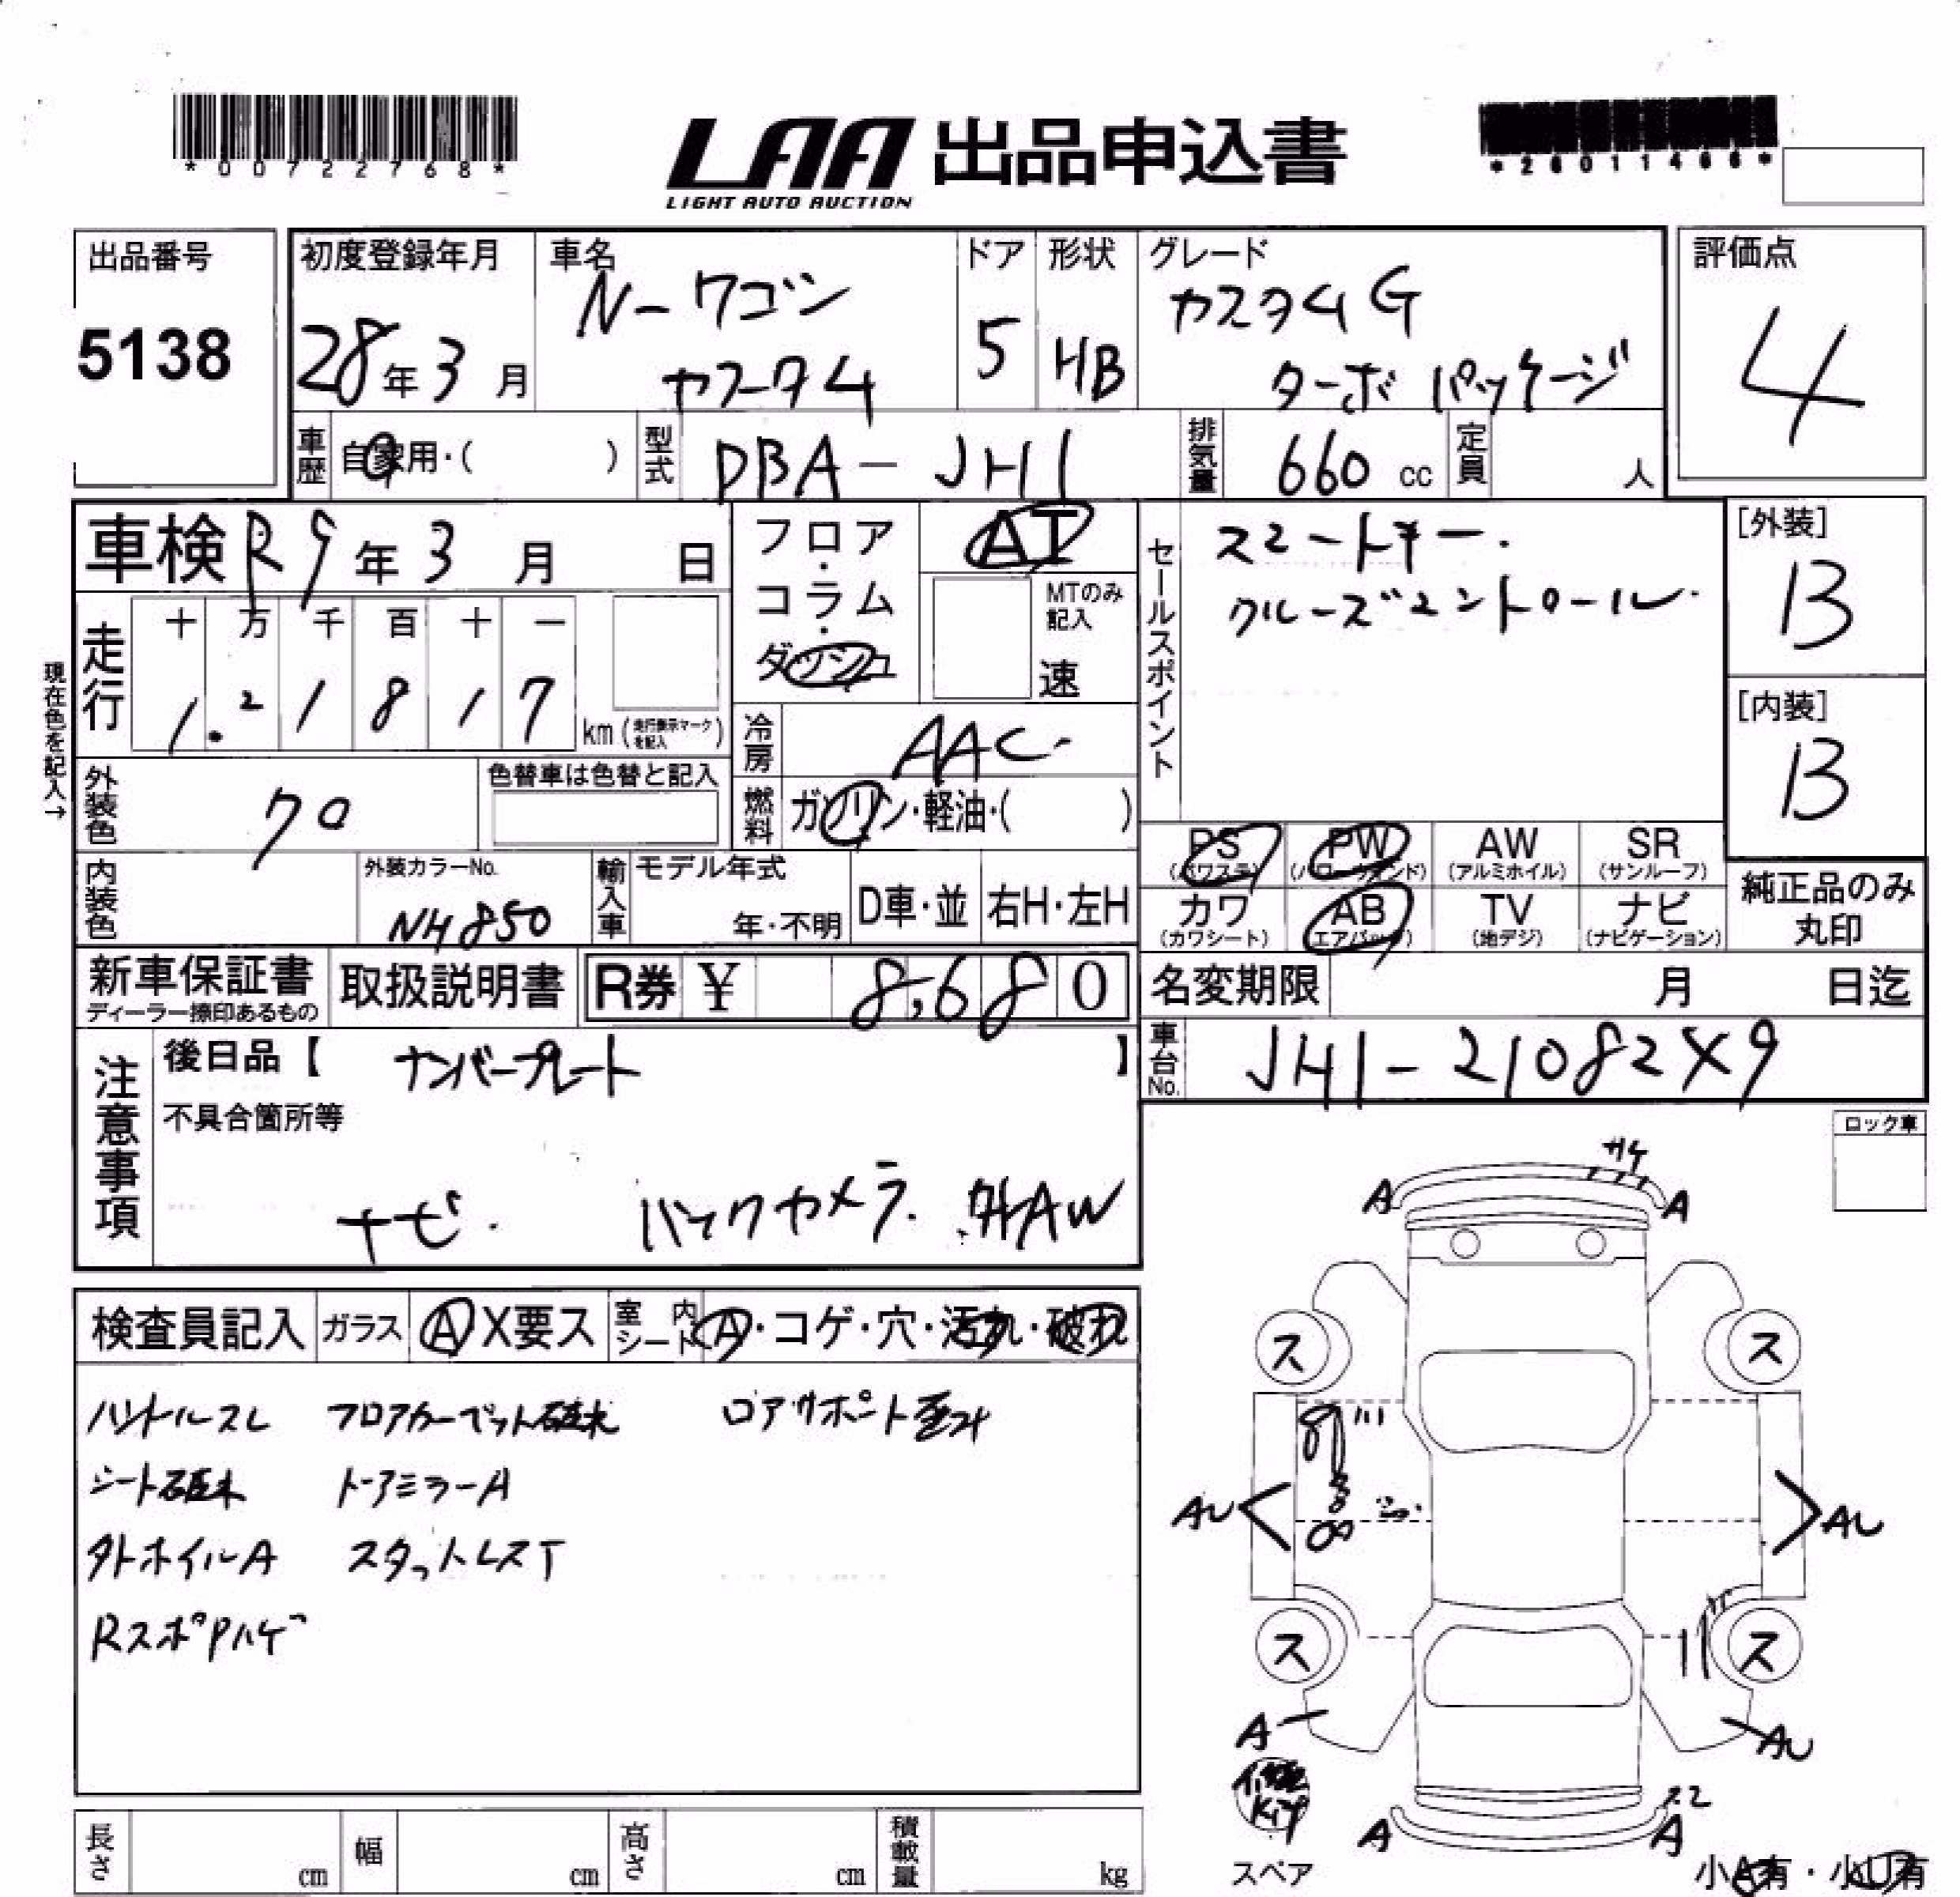 *00722768*
LAA 出品申込書
LIGHT AUTO AUCTION
*26011466*
出品番号
5138
初度登録年月
28年3月
車名
N-ワゴン
カスタム
ドア
5
形状
HB
グレード
カスタムG
ターボ パッケージ
評価点
4
車歴 自家用・( )
型式 DBA-JH1
排気量 660 cc
定員 人
車検 R9年3月 日
フロア・コラム・ダッシュ
AT
MTのみ記入
速
セールスポイント
スマートキー.
クルーズコントロール.
[外装]
B
[内装]
B
現在色を記入→
走行
十 万 千 百 十 一
1.21817
km (走行表示マークを記入)
冷房 AAC
燃料 ガソリン・軽油・( )
外装色 クロ
色替車は色替と記入
内装色
外装カラーNo.
NH850
輸入車
モデル年式
年・不明
D車・並
右H・左H
PS (パワステ)
PW (パワーウインド)
AW (アルミホイル)
SR (サンルーフ)
カワ (カワシート)
AB (エアバッグ)
TV (地デジ)
ナビ (ナビゲーション)
純正品のみ
丸印
新車保証書
ディーラー捺印あるもの
取扱説明書
R券 ¥ 8,680
名変期限 月 日迄
車台No. JH1-21082X9
注意事項
後日品【 ナンバープレート 】
不具合箇所等
ナビ. バックカメラ. 外AW
ロック車
検査員記入
ガラス A X要ス
室内シート A・コゲ・穴・汚れ・破れ
ハンドルスレ フロアカーペット破れ ロアサポート歪み
シート破れ ドアミラーA
外ホイルA スタットレスT
RスポPハゲ
A
A
ス
ス
AU
AU
ス
ス
A
AU
A
A
スペア
小A有・小U有
長さ cm
幅 cm
高さ cm
積載量 kg